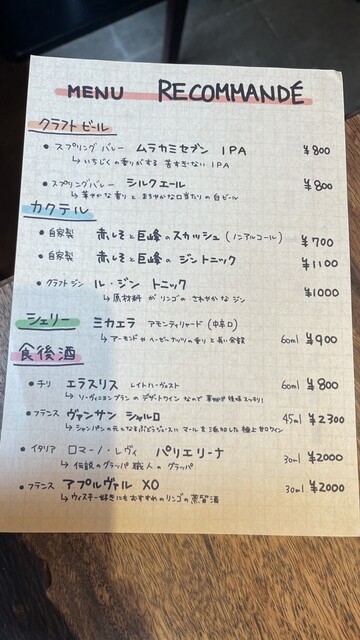 MENU RECOMMANDÉ
クラフトビール
• スプリングバレー ムラカミセブン IPA ¥800
↳ いちじくの香りがする 苦すぎない IPA
• スプリングバレー シルクエール ¥800
↳ 華やかな香りと まろやかな口当たりの白ビール
カクテル
• 自家製 赤しそと巨峰のスカッシュ (ノンアルコール) ¥700
• 自家製 赤しそと巨峰の ジントニック ¥1100
• クラフトジン ル・ジン トニック ¥1000
↳ 原材料 が リンゴの さわやかな ジン
シェリー ミカエラ アモンティリャード (中辛口) 60ml ¥900
↳ アーモンドや ヘーゼルナッツの香りと長い余韻
食後酒
• チリ エラスリス レイトハーヴェスト 60ml ¥800
↳ ソーヴィニヨンブランの デザートワイン なので 後味スッキリ!
• フランス ヴァンサン シャルロ 45ml ¥2300
↳ シャンパンの元となるぶどうジュースに マールを添加した極上甘口ワイン
• イタリア ロマーノ・レヴィ パリエリーナ 30ml ¥2000
↳ 伝説のグラッパ職人の グラッパ
• フランス アプルヴァル XO 30ml ¥2000
↳ ウィスキー好きにもおすすめのリンゴの蒸留酒